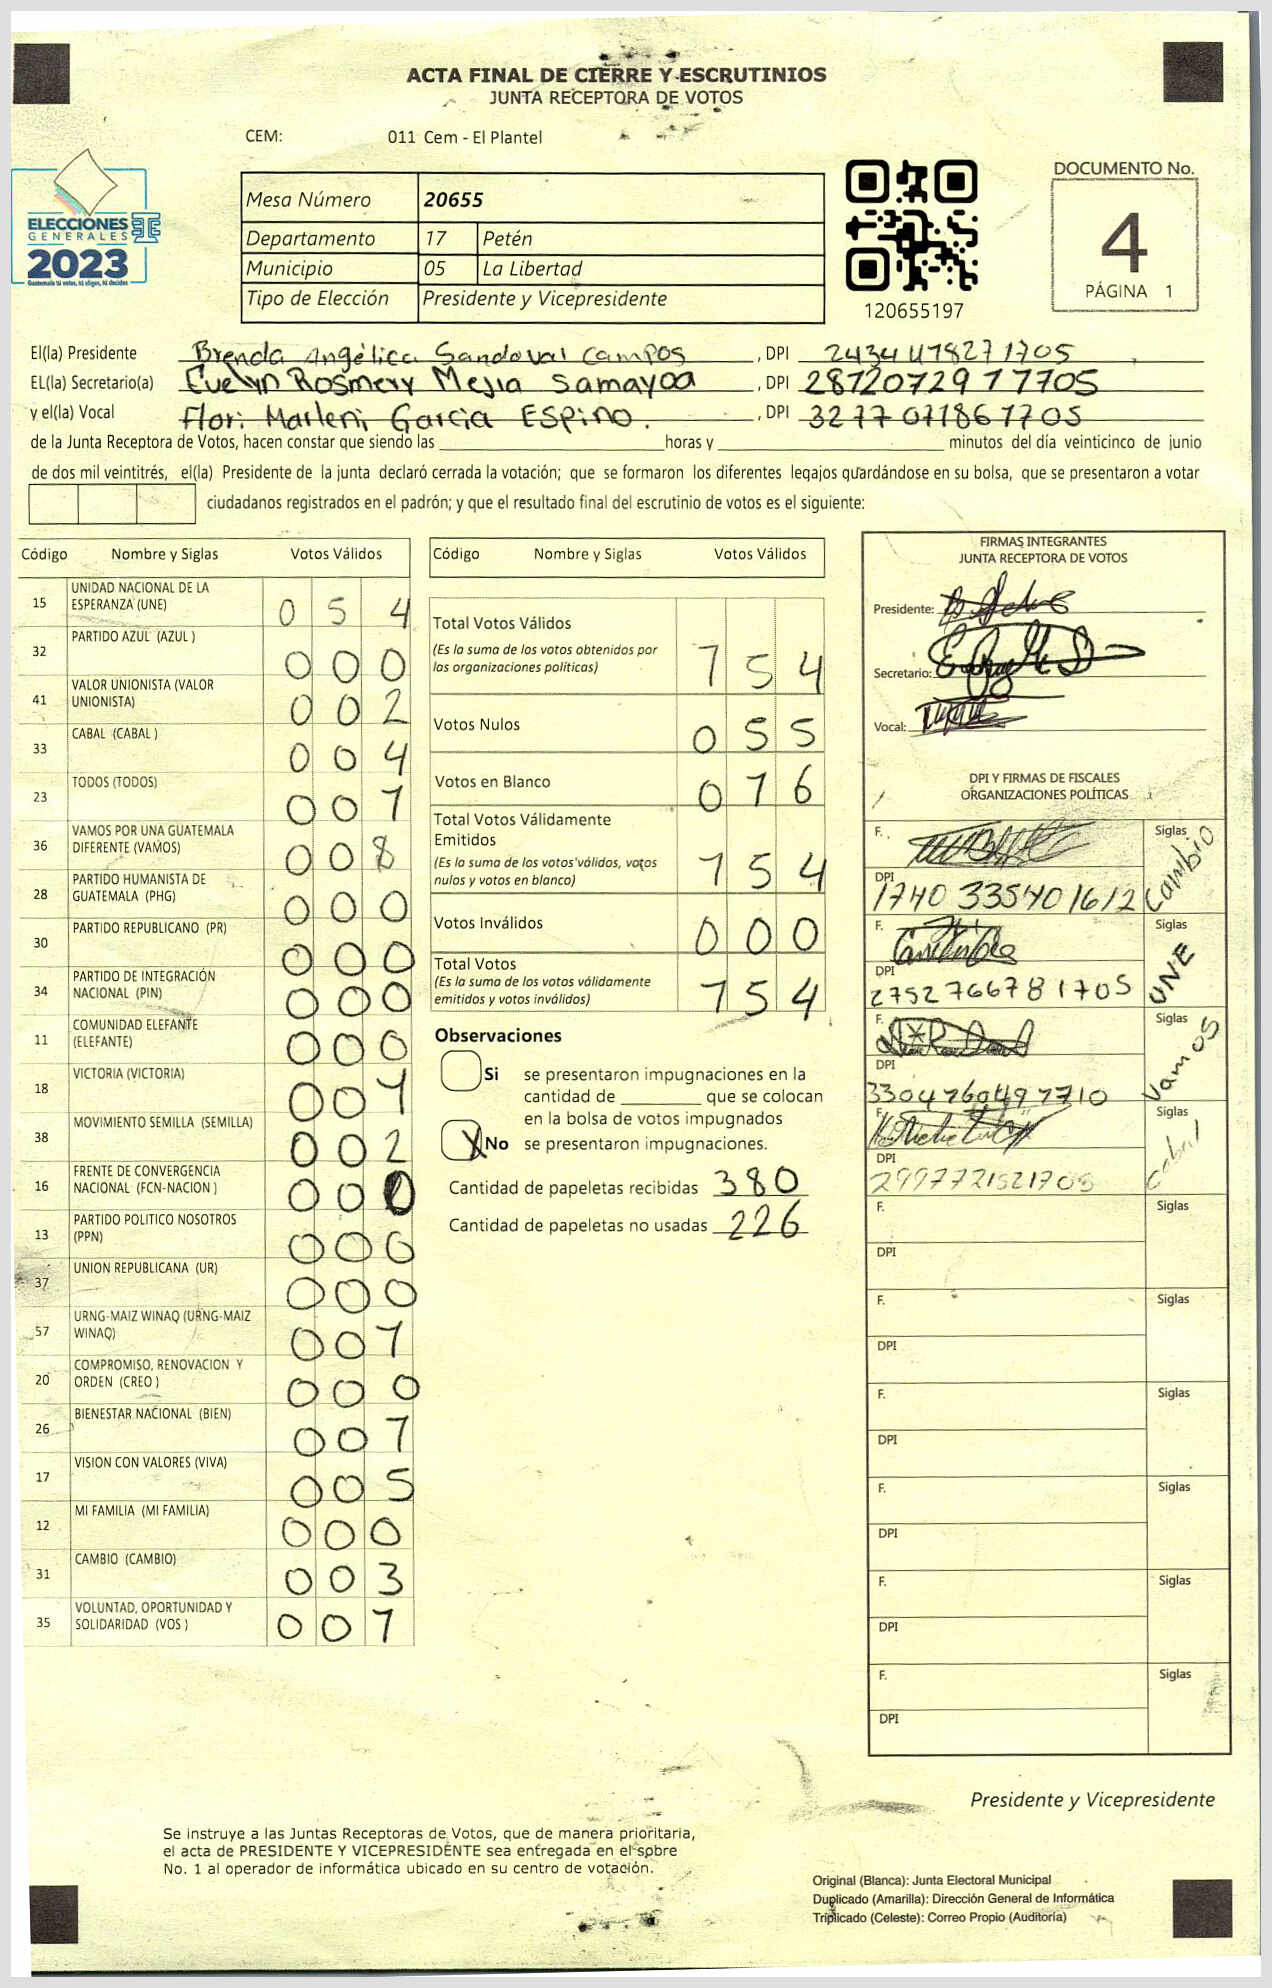 ACTA FINAL DE CIERRE Y ESCRUTINIOS
JUNTA RECEPTORA DE VOTOS
CEM: 011 Cem - El Plantel
ELECCIONES
GENERALES
2023
Guatemala tú votas, tú eliges, tú decides
Mesa Número 20655
Departamento 17 Petén
Municipio 05 La Libertad
Tipo de Elección Presidente y Vicepresidente
120655197
DOCUMENTO No.
4
PÁGINA 1
El(la) Presidente Brenda Angélica Sandoval Campos, DPI 2434 41827 1705
EL(la) Secretario(a) Evelyn Rosmery Mejia Samayoa, DPI 2872072917705
y el(la) Vocal Flori Marleni Garcia ESpino., DPI 3277 071861705
de la Junta Receptora de Votos, hacen constar que siendo las horas y minutos del día veinticinco de junio
de dos mil veintitrés, el(la) Presidente de la junta declaró cerrada la votación; que se formaron los diferentes legajos guardándose en su bolsa, que se presentaron a votar
ciudadanos registrados en el padrón; y que el resultado final del escrutinio de votos es el siguiente:
Código Nombre y Siglas Votos Válidos
15 UNIDAD NACIONAL DE LA ESPERANZA (UNE) 0 5 4
32 PARTIDO AZUL (AZUL ) 0 0 0
41 VALOR UNIONISTA (VALOR UNIONISTA) 0 0 2
33 CABAL (CABAL ) 0 0 4
23 TODOS (TODOS) 0 0 7
36 VAMOS POR UNA GUATEMALA DIFERENTE (VAMOS) 0 0 8
28 PARTIDO HUMANISTA DE GUATEMALA (PHG) 0 0 0
30 PARTIDO REPUBLICANO (PR) 0 0 0
34 PARTIDO DE INTEGRACIÓN NACIONAL (PIN) 0 0 0
11 COMUNIDAD ELEFANTE (ELEFANTE) 0 0 0
18 VICTORIA (VICTORIA) 0 0
38 MOVIMIENTO SEMILLA (SEMILLA) 0 0 2
16 FRENTE DE CONVERGENCIA NACIONAL (FCN-NACION ) 0 0 0
13 PARTIDO POLITICO NOSOTROS (PPN) 0 0 0
37 UNION REPUBLICANA (UR) 0 0 0
57 URNG-MAIZ WINAQ (URNG-MAIZ WINAQ) 0 0 7
20 COMPROMISO, RENOVACION Y ORDEN (CREO ) 0 0 0
26 BIENESTAR NACIONAL (BIEN) 0 0 7
17 VISION CON VALORES (VIVA) 0 0 5
12 MI FAMILIA (MI FAMILIA) 0 0 0
31 CAMBIO (CAMBIO) 0 0 3
35 VOLUNTAD, OPORTUNIDAD Y SOLIDARIDAD (VOS ) 0 0 7
Código Nombre y Siglas Votos Válidos
Total Votos Válidos 7 5 4
(Es la suma de los votos obtenidos por
las organizaciones políticas)
Votos Nulos 0 5 5
Votos en Blanco 0 7 6
Total Votos Válidamente
Emitidos 7 5 4
(Es la suma de los votos válidos, votos
nulos y votos en blanco)
Votos Inválidos 0 0 0
Total Votos 7 5 4
(Es la suma de los votos válidamente
emitidos y votos inválidos)
Observaciones
Si se presentaron impugnaciones en la
cantidad de que se colocan
en la bolsa de votos impugnados
X No se presentaron impugnaciones.
Cantidad de papeletas recibidas 380
Cantidad de papeletas no usadas 226
FIRMAS INTEGRANTES
JUNTA RECEPTORA DE VOTOS
Presidente:
Secretario:
Vocal:
DPI Y FIRMAS DE FISCALES
ORGANIZACIONES POLÍTICAS
F. Siglas Cambio
DPI 1740 33540 1612
F. Siglas UNE
DPI 2752766781705
F. Siglas Vamos
DPI 3304760497710
F. Siglas Cabal
DPI
F. Siglas
DPI
F. Siglas
DPI
F. Siglas
DPI
F. Siglas
DPI
F. Siglas
DPI
F. Siglas
DPI
Presidente y Vicepresidente
Se instruye a las Juntas Receptoras de Votos, que de manera prioritaria,
el acta de PRESIDENTE Y VICEPRESIDENTE sea entregada en el sobre
No. 1 al operador de informática ubicado en su centro de votación.
Original (Blanca): Junta Electoral Municipal
Duplicado (Amarilla): Dirección General de Informática
Triplicado (Celeste): Correo Propio (Auditoría)